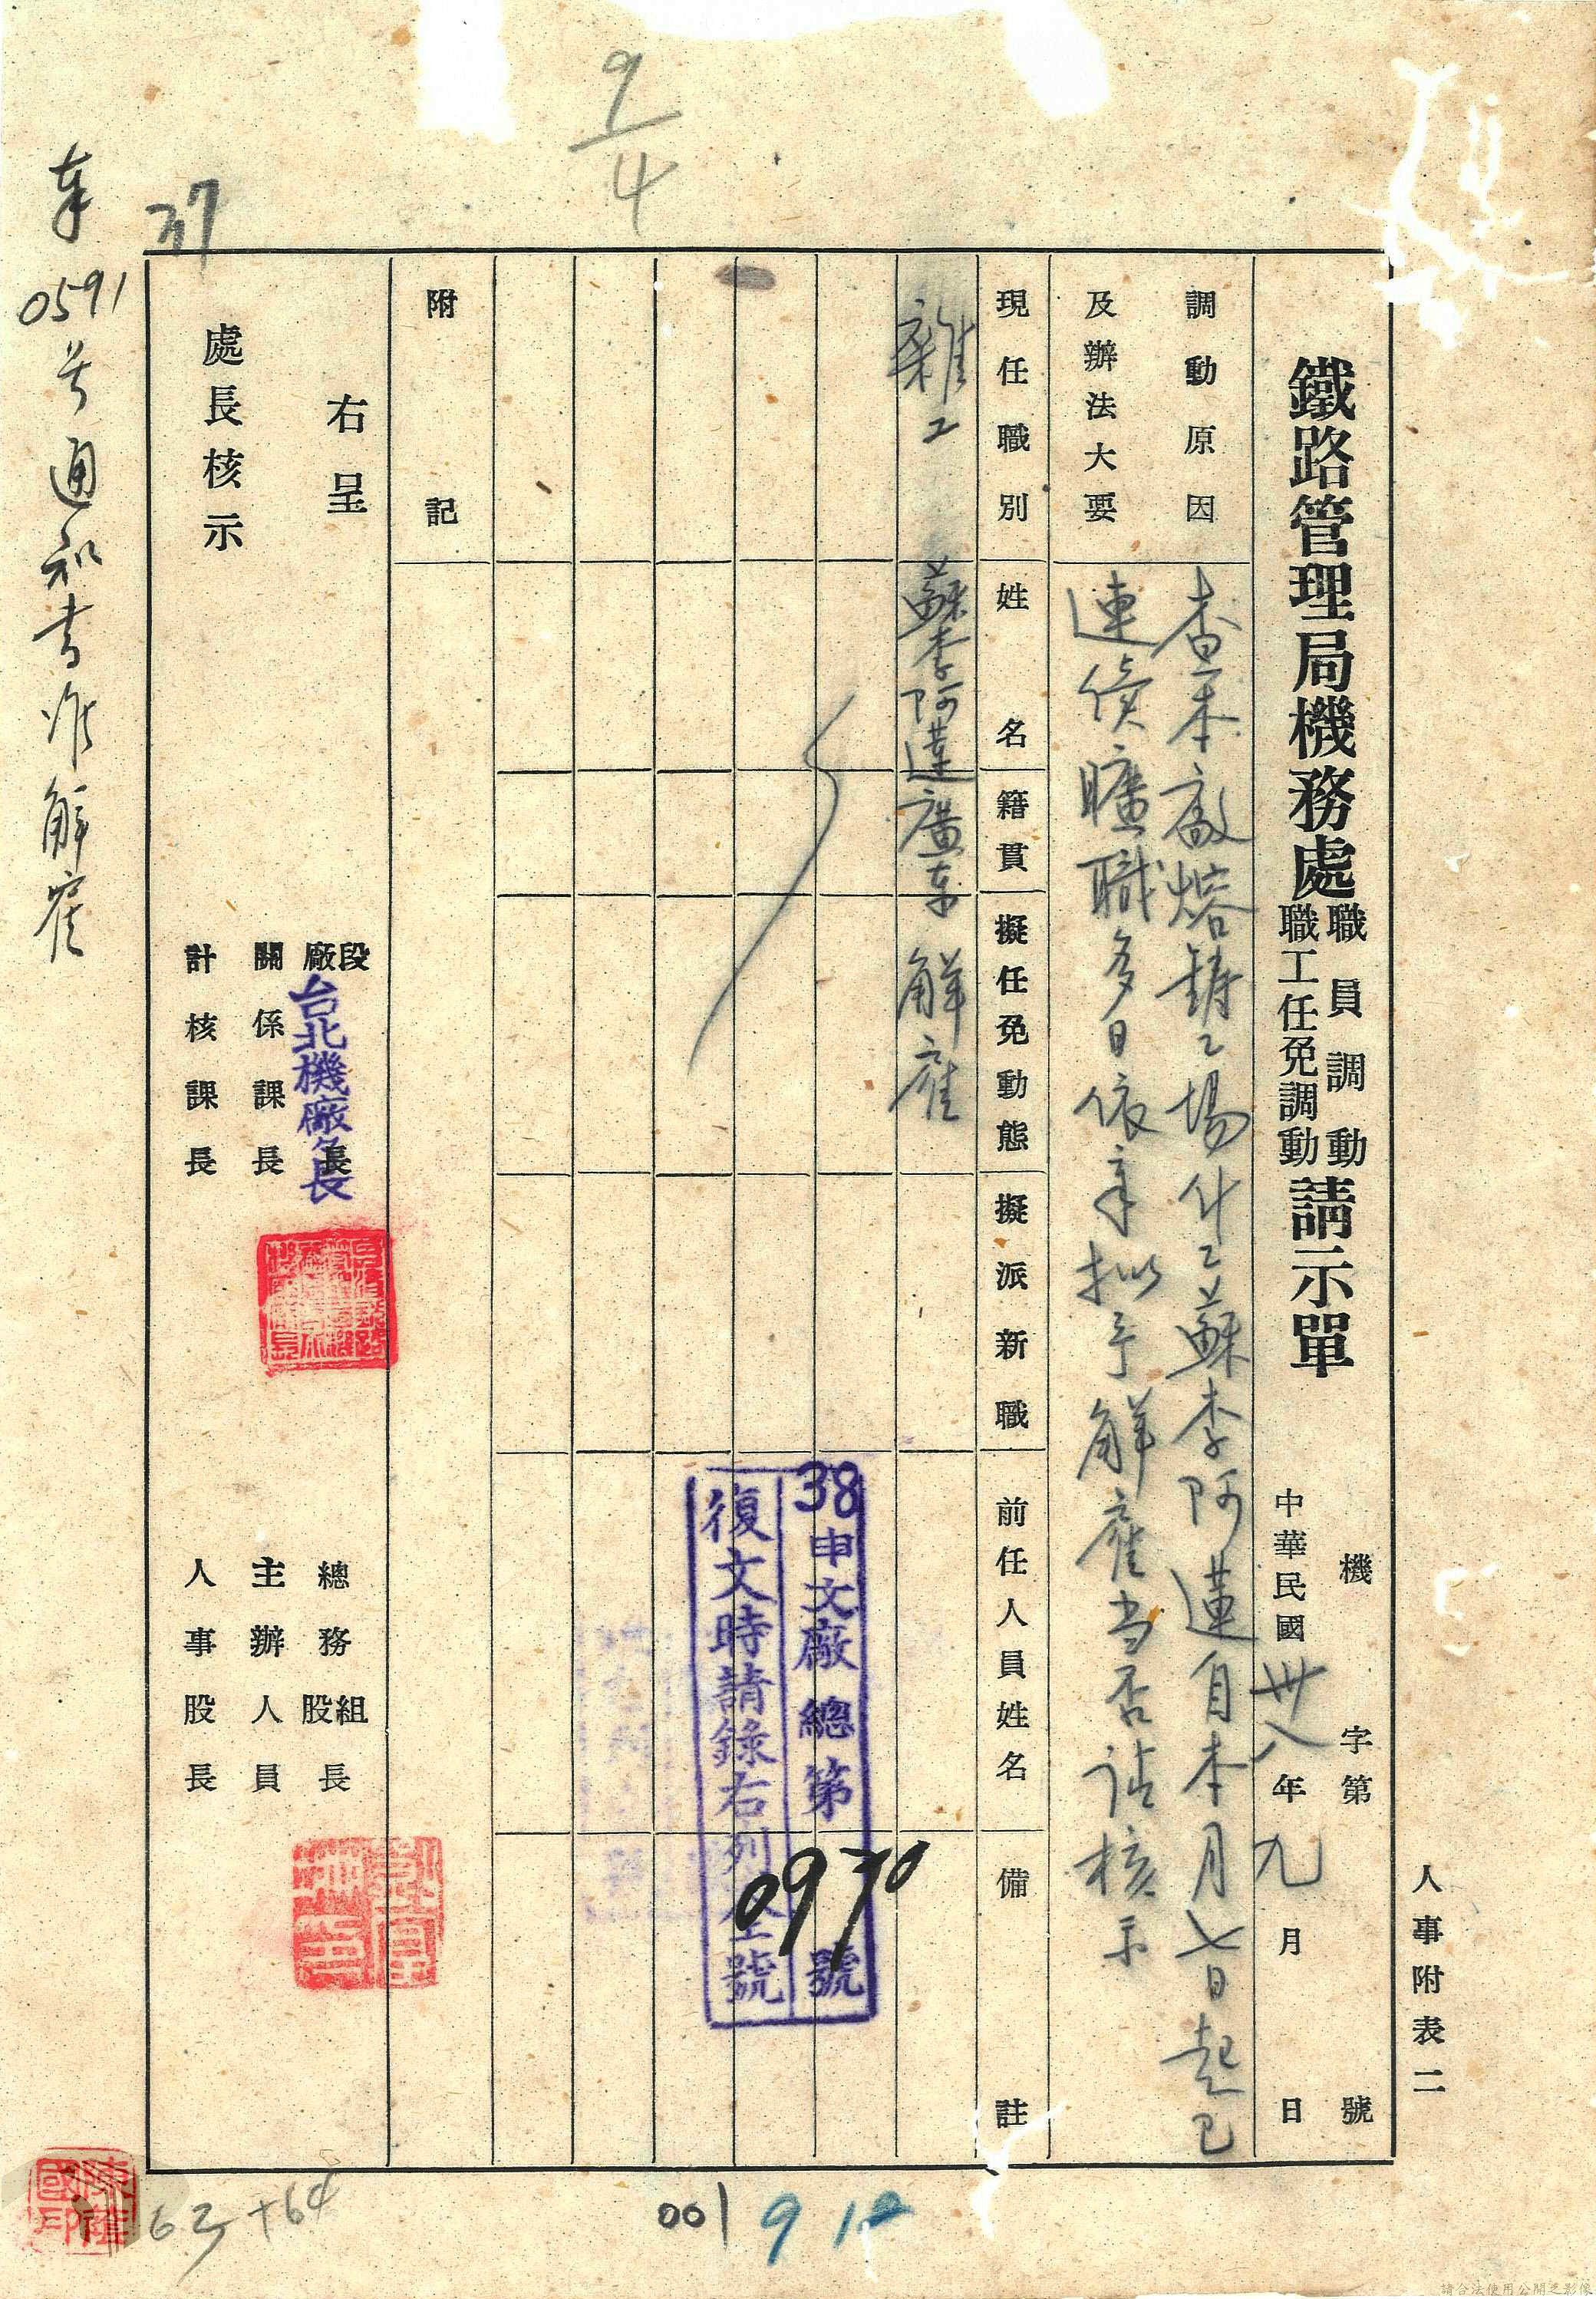 人事附表二
鐵路管理局機務處職員調動職工任免調動請示單
機 字第 號
中華民國卅八年九月 日
調動原因及辦法大要
查本廠熔鑄工場什工蘇李阿蓮自本月七日起已
連續曠職多日依章拟予解雇当否請核示
現任職別 姓名 籍貫 擬任免動態 擬派新職 前任人員姓名 備註
雜工 蘇李阿蓮 廣東 解雇
38申文廠總第0970號
復文時請錄右列全號
附記
右呈
處長核示
廠段長
台北機廠長
關係課長
計核課長
總務股組長
主辦人員
人事股長
奉0591号通知書准解雇
37
9/4
陳 國印
63+64
001
9 12
請合法使用公開之影像